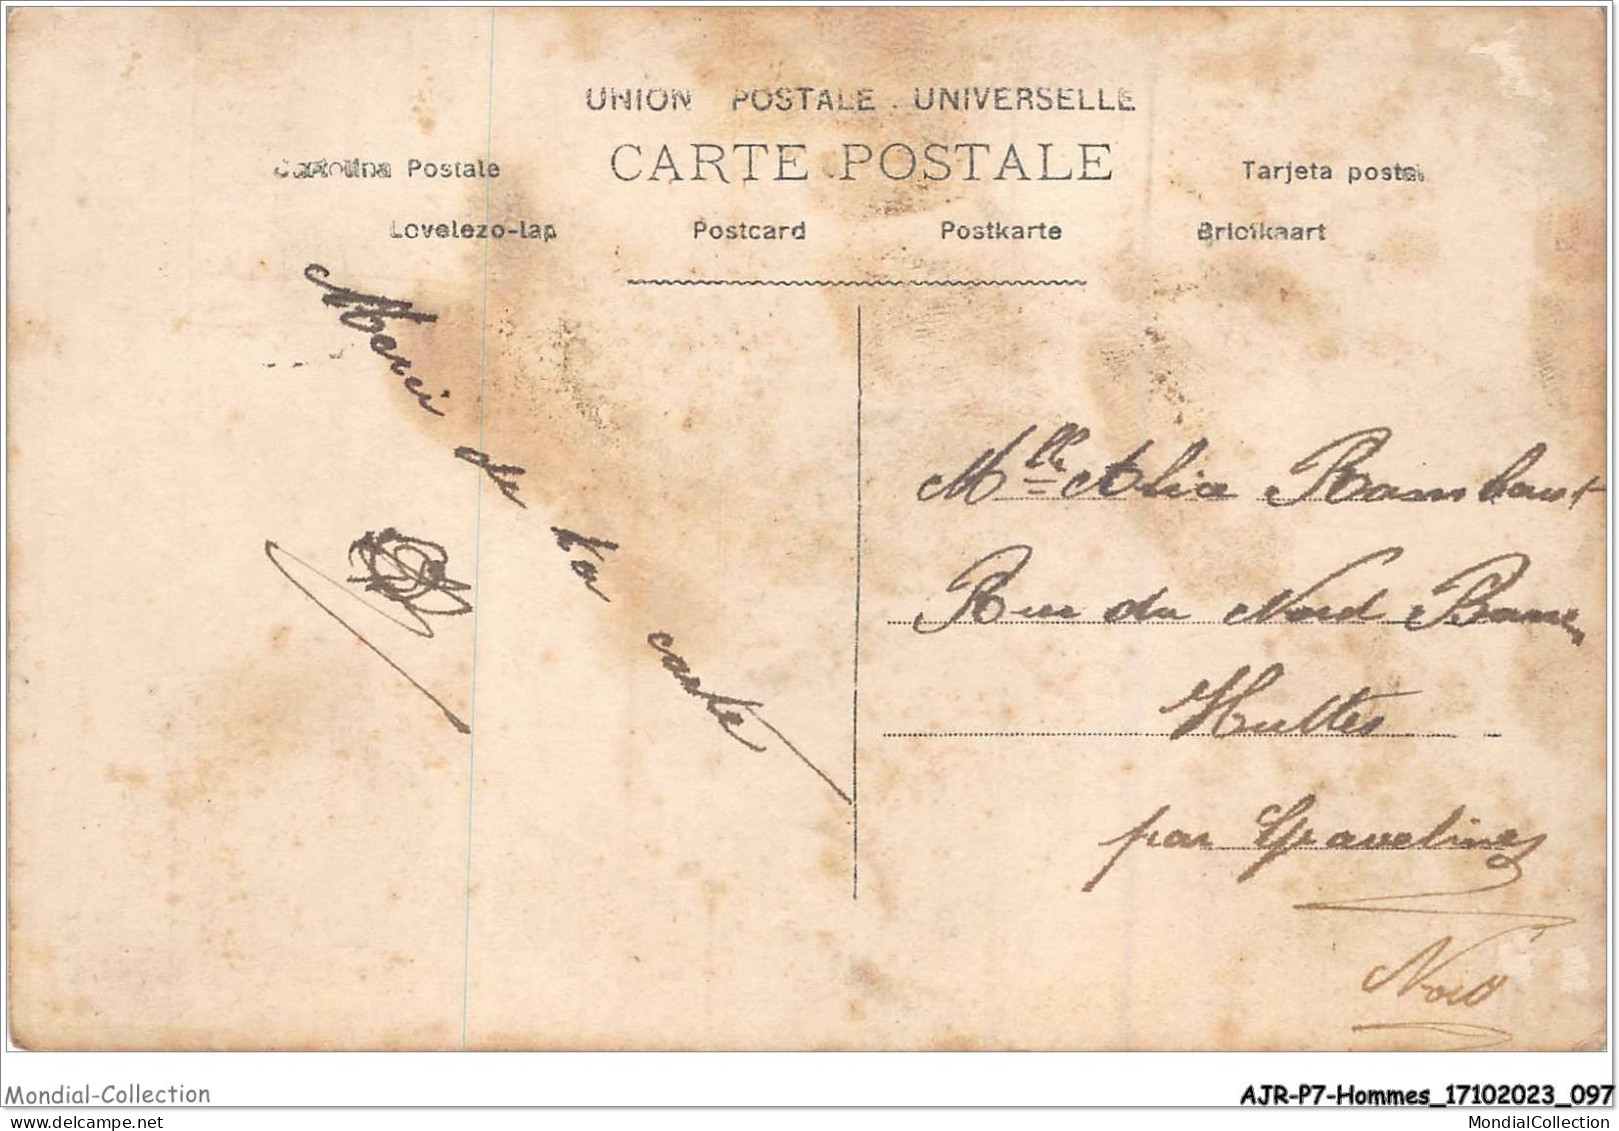 UNION POSTALE UNIVERSELLE
CARTE POSTALE
Cartolina Postale
Tarjeta postal
Levelezo-lap Postcard Postkarte Briefkaart
Merci de ta carte
Mlle Alice Rambaut
Rue du Nord
Huttes
par Gravelines
Nord
Mondial-Collection
AJR-P7-Hommes_17102023_097
MondialCollection